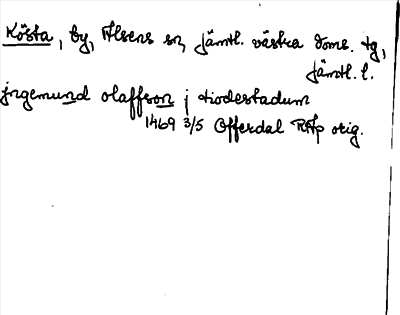 Kösta, by, Alsens sn, Jämtl. västra doms. tg,
Jämtl. l.
jngemund olaffson j diodestadum
1469 3/5 Offerdal RAp orig.